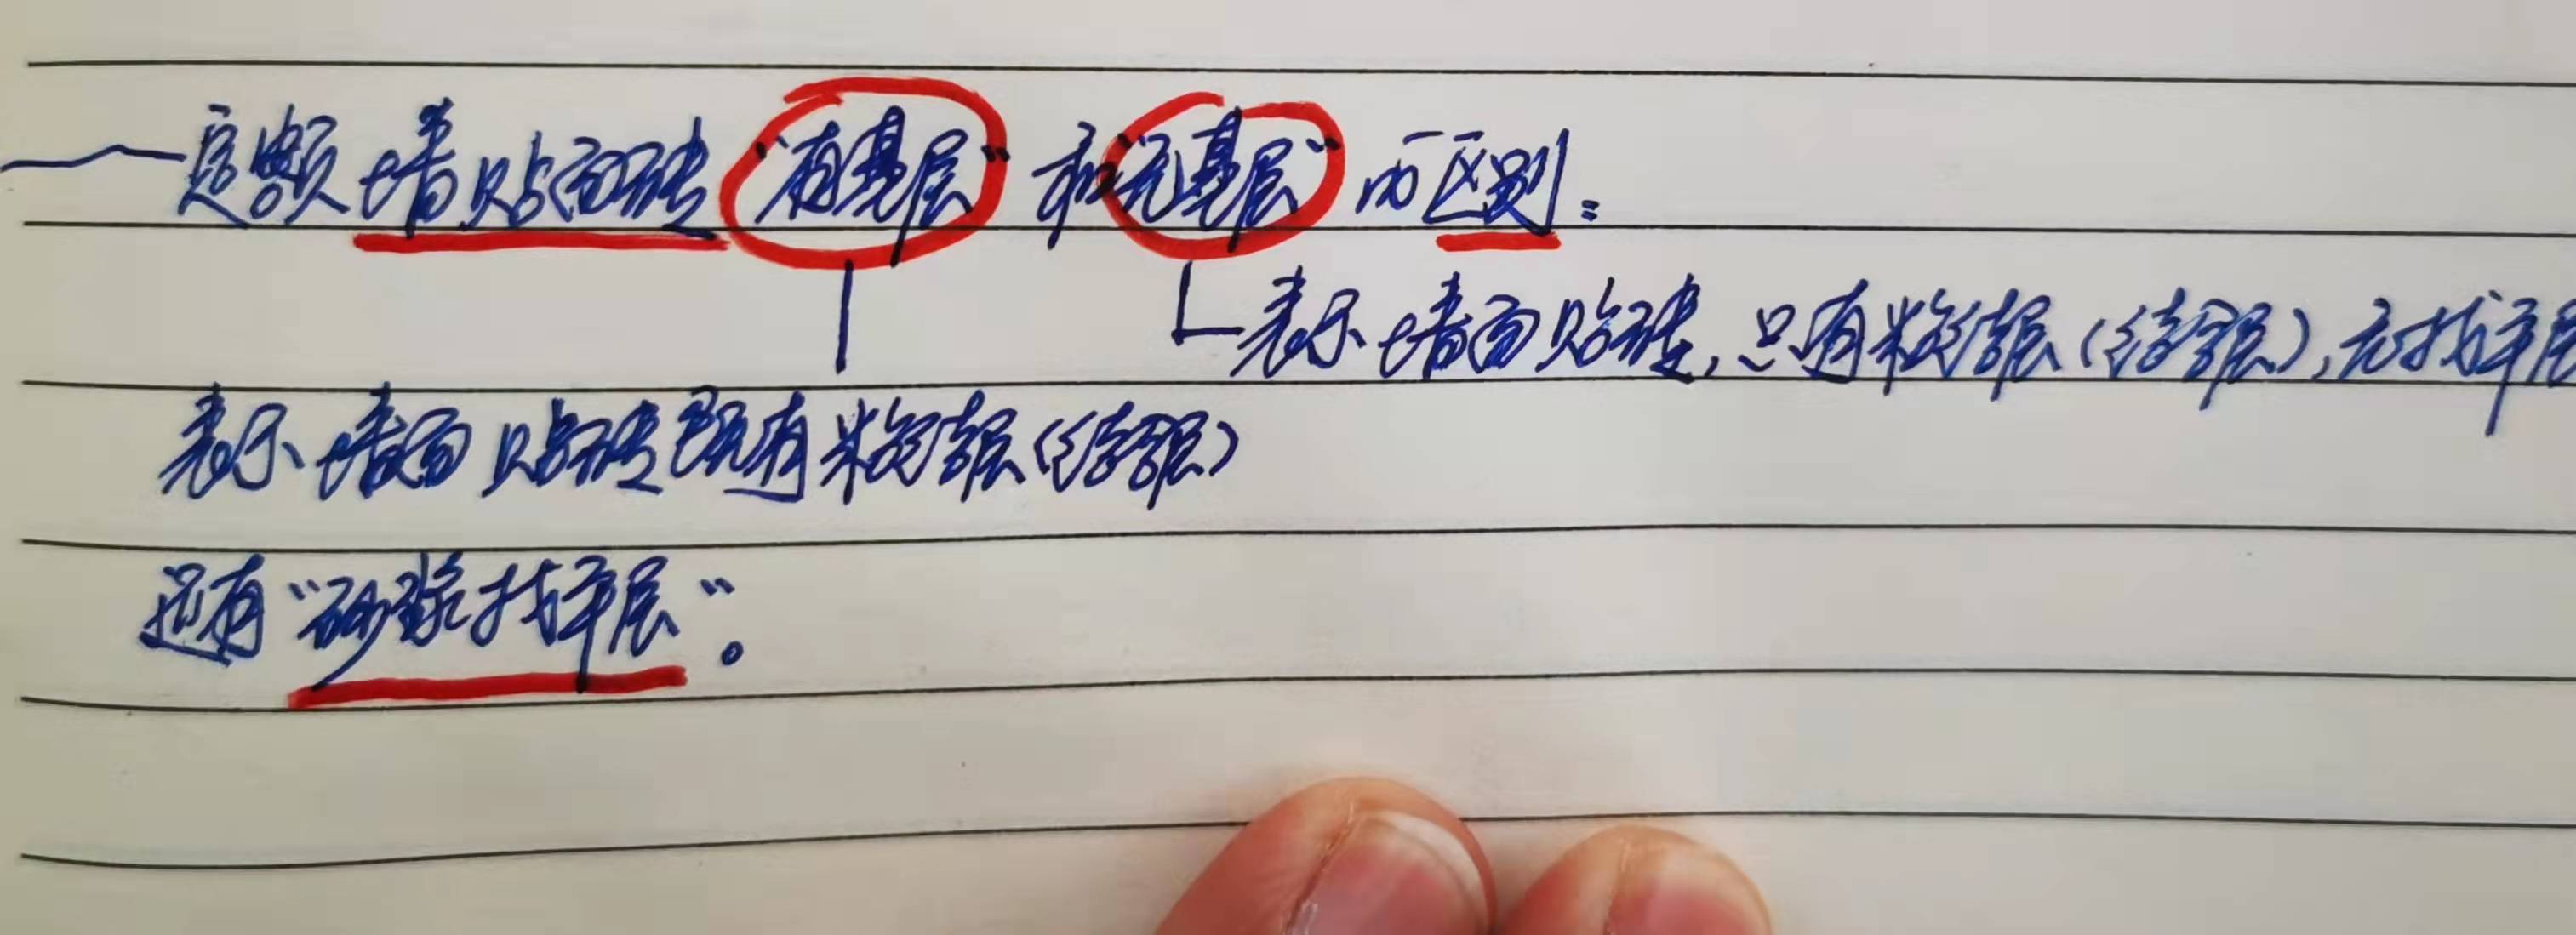 定额墙贴面砖“有基层”和“无基层”的区别：
表示墙面贴砖，只有粘结层（结合层），无找平层
表示墙面贴砖既有粘结层（结合层）
还有“砂浆找平层”。